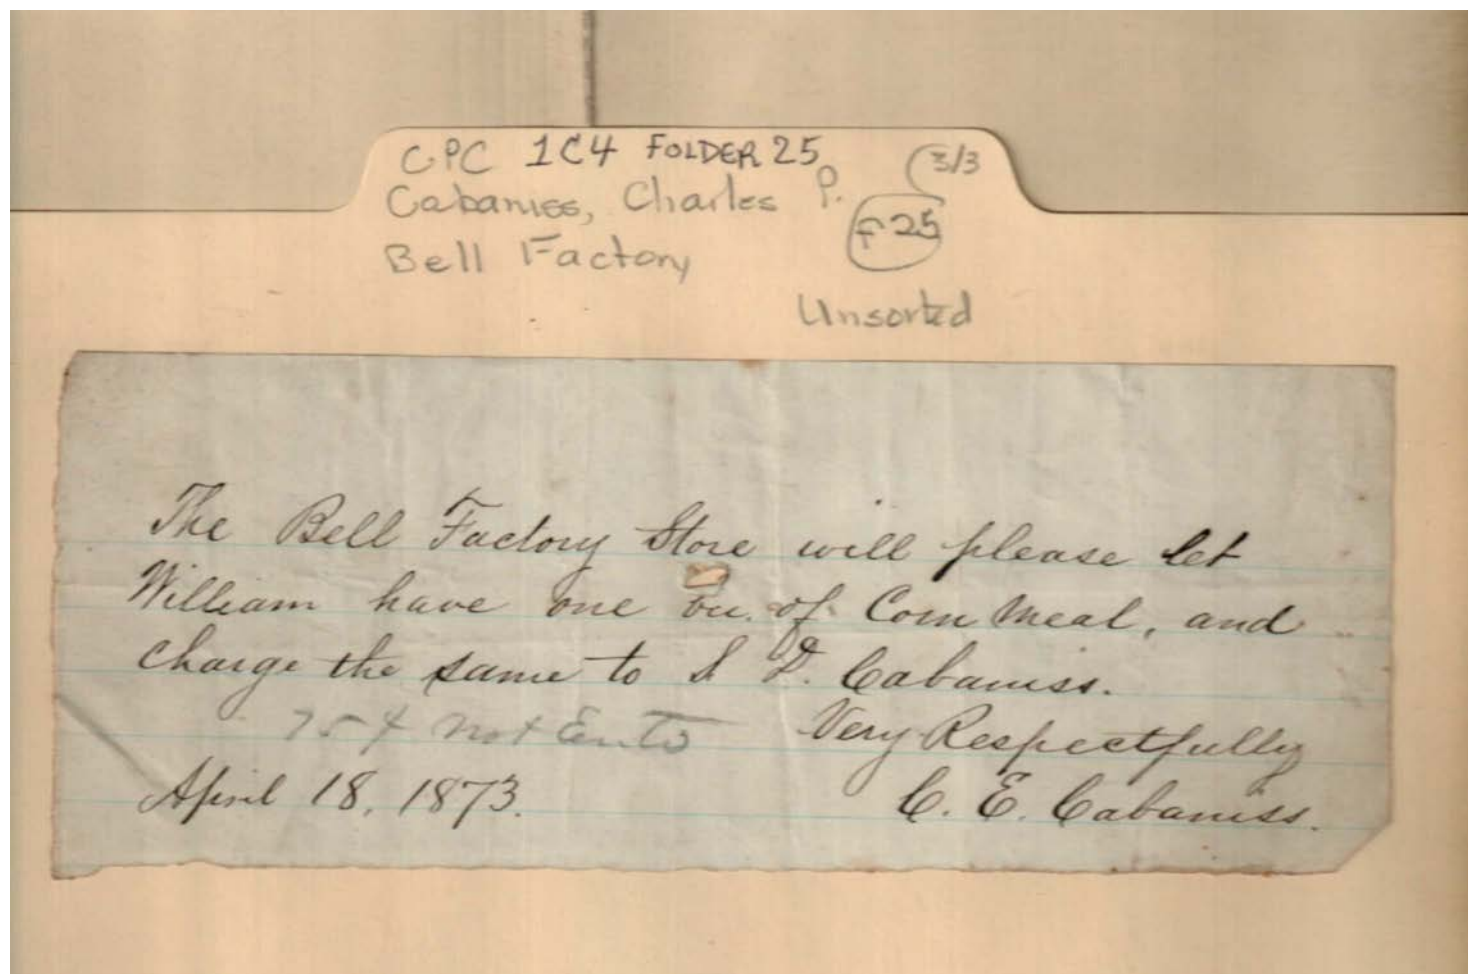 CPC 1C4 FOLDER 25
3/3
Cabaniss, Charles P.
F 25
Bell Factory
Unsorted
The Bell Factory Store will please let
William have one bu. of Corn Meal, and
charge the same to S. D. Cabaniss.
75 ¢ not Ent'd
Very Respectfully
April 18, 1873.
C. E. Cabaniss.